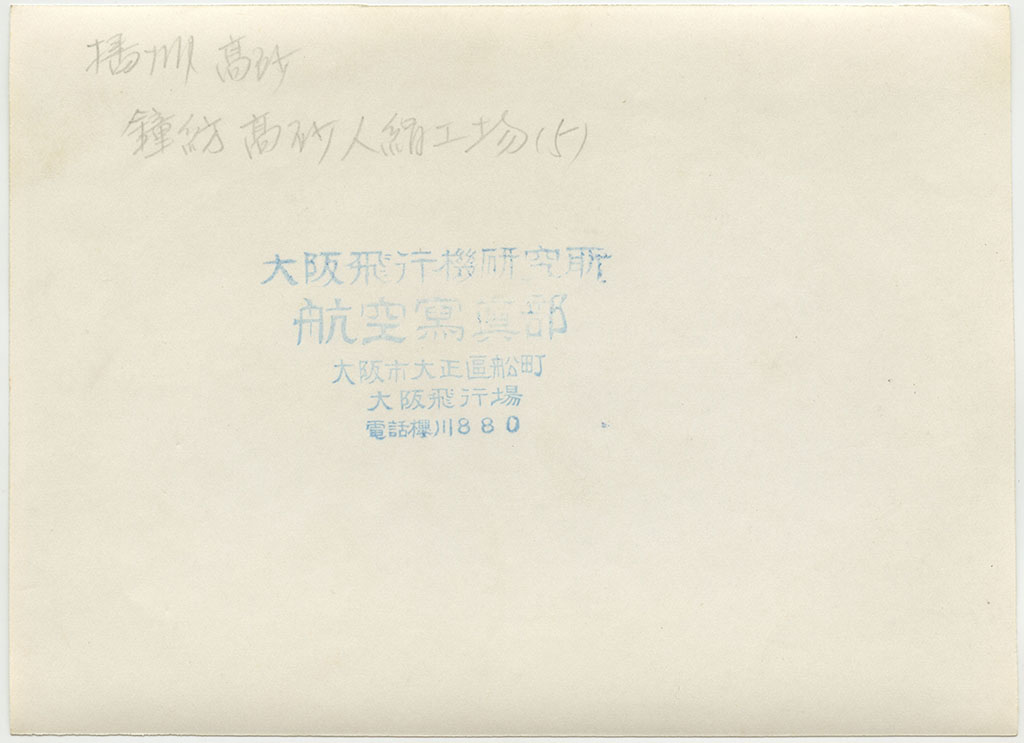 播州 高砂
鐘紡 高砂人絹工場(5)
大阪飛行機研究所
航空寫真部
大阪市大正區船町
大阪飛行場
電話櫻川880